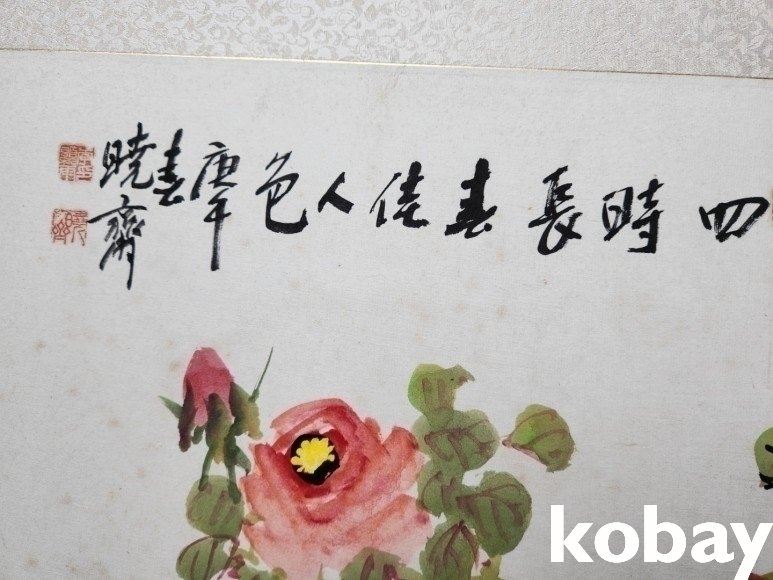 四時長春佳人色
庚午
春
曉齋
kobay